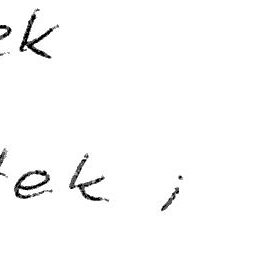 ek
tek ;